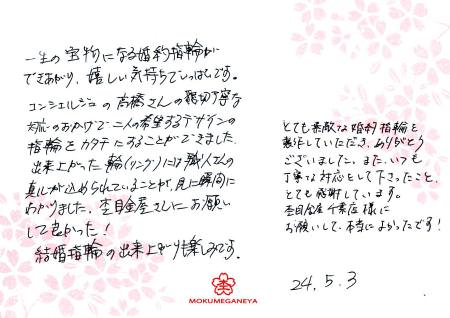 一生の宝物になる婚約指輪が
できあがり、嬉しい気持ちでいっぱいです。
コンシェルジュの高橋さんの親切丁寧な
対応のおかげで二人の希望するデザインの
指輪をカタチにすることができました。
出来上がった輪(リング)には職人さんの
真心が込められていることが、見た瞬間に
わかりました。杢目金屋さんにお願い
して良かった！
結婚指輪の出来上がりも楽しみです。
とても素敵な婚約指輪を
製作していただき、ありがとう
ございました。また、いつも
丁寧な対応をして下さったこと、
とても感謝しています。
杢目金屋千葉店様に
お願いして、本当によかったです！
24.5.3
MOKUMEGANEYA